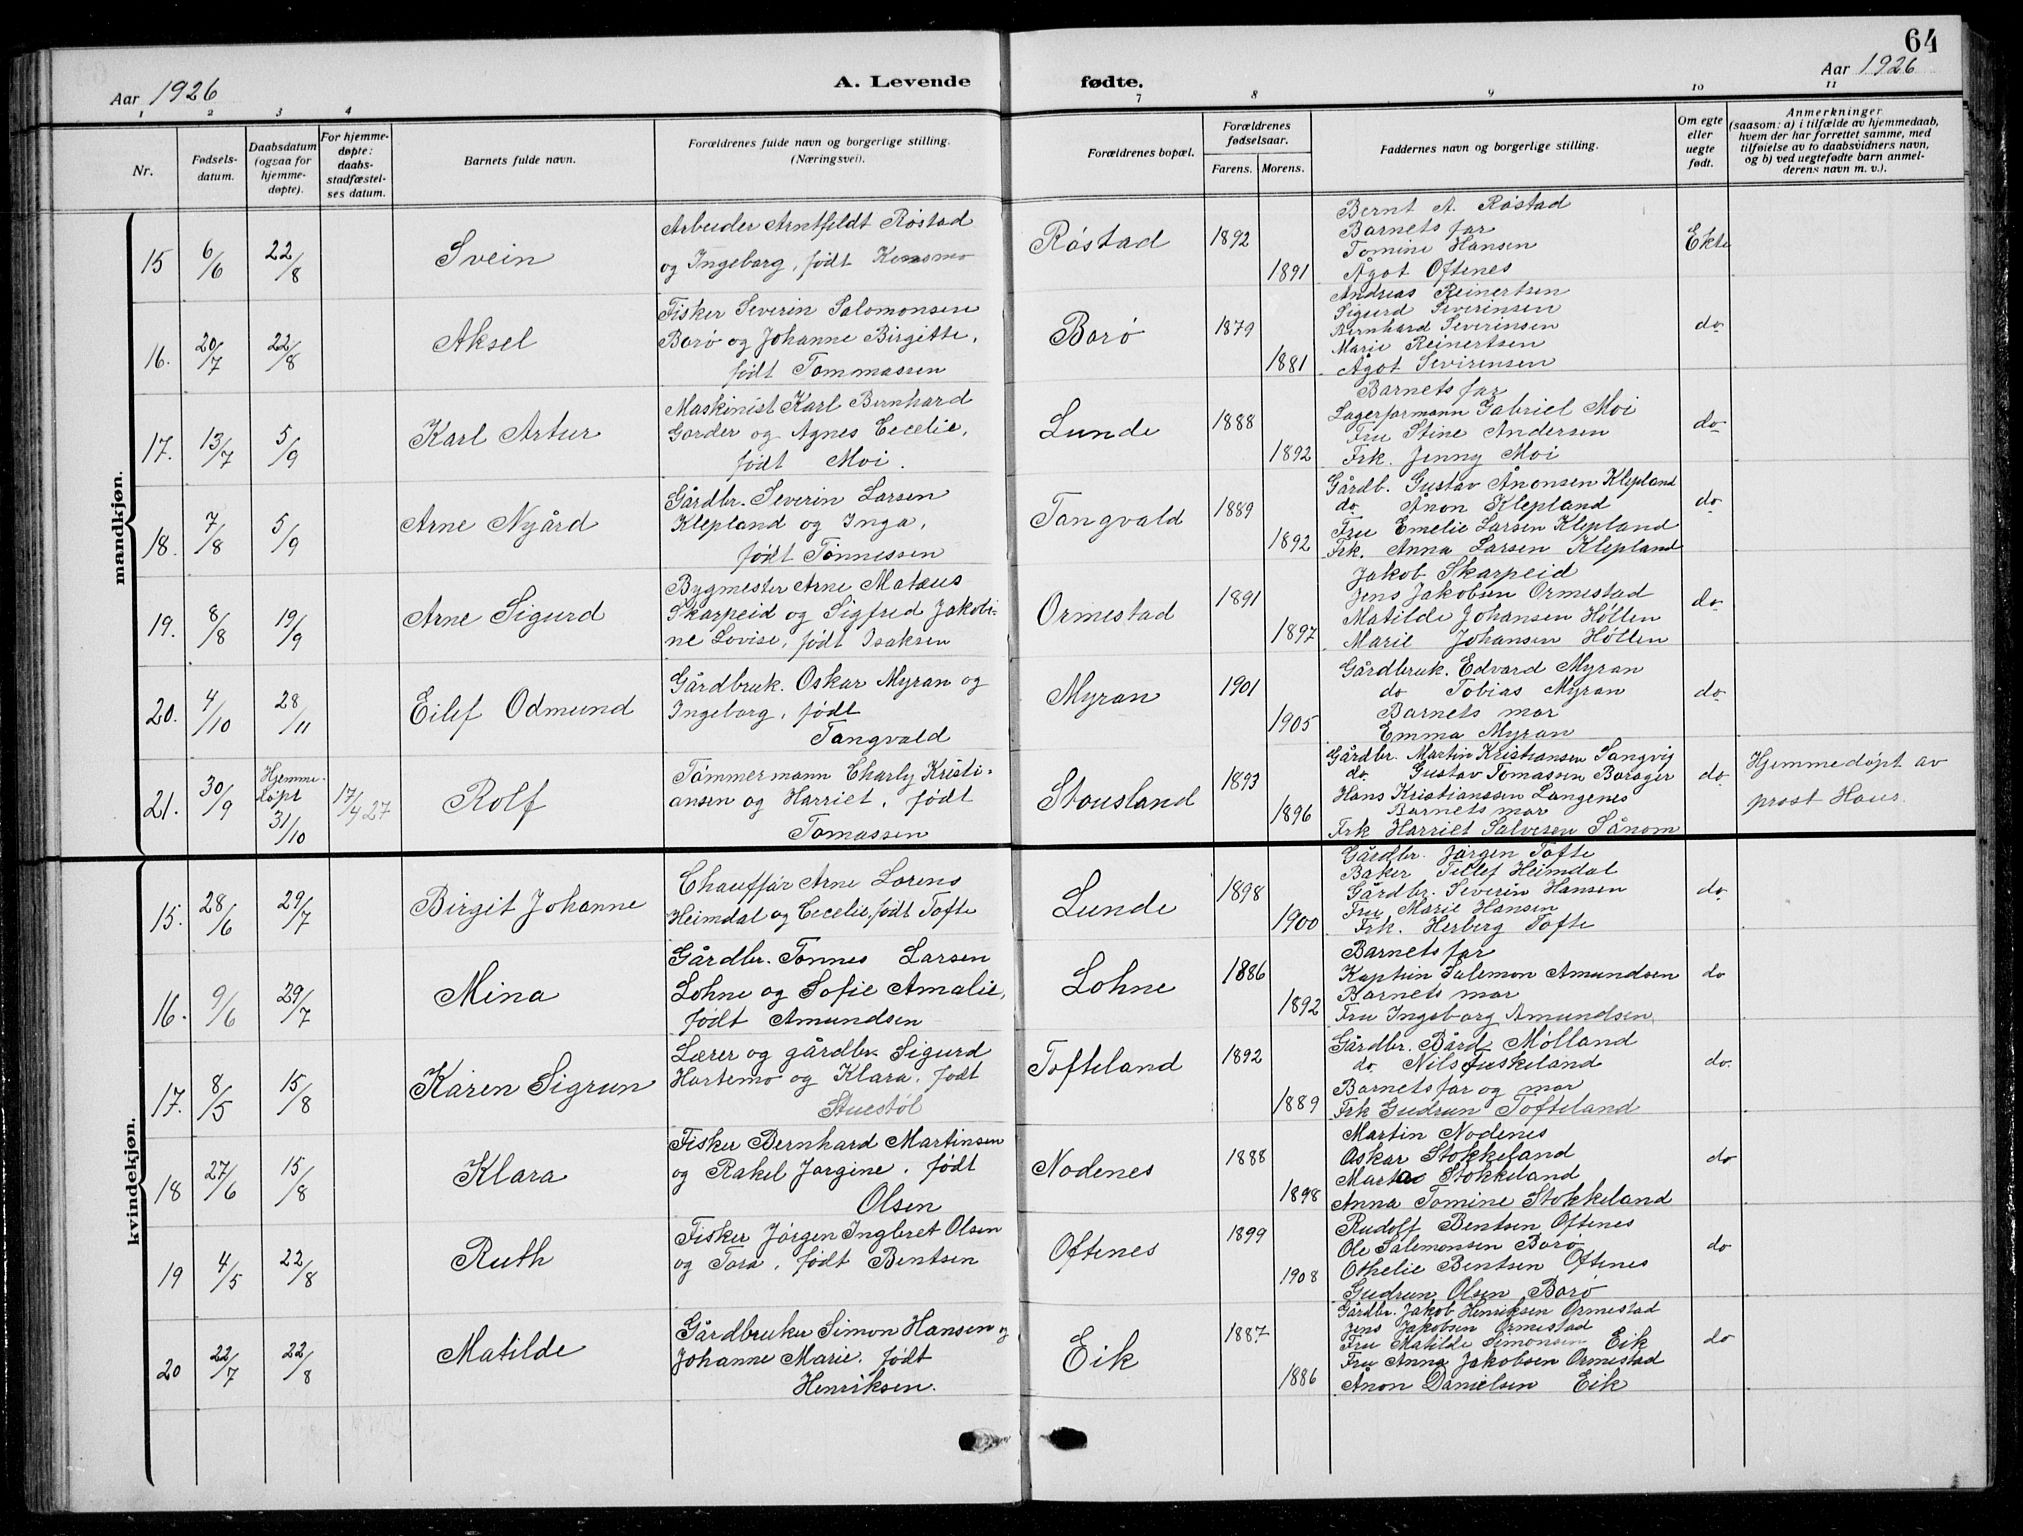 64
Aar 1926
A. Levende fødte.
Aar 1926
1 2 3 4 7 8 9 10 11
Nr.
Fødsels-
datum.
Daabsdatum
(ogsaa for
hjemme-
døpte).
For hjemme-
døpte:
daabs-
stadfæstel-
ses datum.
Barnets fulde navn.
Forældrenes fulde navn og borgerlige stilling.
(Næringsvei).
Forældrenes bopæl.
Forældrenes
fødselsaar.
Farens. Morens.
Faddernes navn og borgerlige stilling.
Om egte
eller
uegte
født.
Anmerkninger
(saasom: a) i tilfælde av hjemmedaab,
hvem der har forrettet samme, med
tilføielse av to daabsvidners navn,
og b) ved uegtefødte barn anmel-
derens navn m. v.).
mandkjøn.
15 6/6 22/8 Svein
Arbeider Arntfeldt Røstad
og Ingeborg, født Kensmo
Røstad 1892 1891
Bernt A. Røstad
Barnets far
Tomine Hansen
Ågot Oftenes
Ekte
16. 20/7 22/8 Aksel
Fisker Severin Salomonsen
Borø og Johanne Birgitte,
født Tommassen
Borø 1879 1881
Andreas Reinertsen
Sigurd Severinsen
Bernhard Severensen
Marie Reinertsen
Ågot Sevirensen
do
17. 13/7 5/9 Karl Artur
Maskinist Karl Bernhard
Gorder og Agnes Cecelie,
født Moi.
Lunde 1888 1892
Barnets far
Lagerformann Gabriel Moi
Fru Stine Andersen
Frk. Jenny Moi
do
18. 7/8 5/9 Arne Nygård
Gårdbr. Severin Larsen
Klepland og Inga,
født Tønnessen
Tangvald 1889 1892
Gårdb. Gustav Ånonsen Klepland
do Ånon Klepland
Fru Emelie Larsen Klepland
Frk. Anna Larsen Klepland
do
19. 8/8 19/9 Arne Sigurd
Bygmester Arne Mataus
Skarpeid og Sigfred Jakobi-
ne Lovise, født Isaksen
Ormestad 1891 1897
Jakob Skarpeid
Jens Jakobsen Ormestad
Matilde Johansen Høllen
Marie Johansen Høllen
do
20. 4/10 28/11 Eilef Odmund
Gårdbruk. Oskar Myran og
Ingeborg, født
Tangvald
Myran 1901 1905
Gårdbruk. Edvard Myran
do Tobias Myran
Barnets mor
Emma Myran
do
21. 30/9 Hjemme-
døpt
31/10 17/4 27 Rolf
Tømmermann Charly Kristi-
ansen og Harriet, født
Tomassen
Stousland 1893 1896
Gårdbr. Martin Kristiansen Sangvig
do. Gustav Tomassen Borøger
Hans Kristianssen Langenes
Barnets mor
Frk Harriet Salvesen Sånom
do
Hjemmedøpt av
prost Haus.
kvindekjøn.
15. 28/6 29/7 Birgit Johanne
Chauffør Arne Lorens
Heimdal og Cecelie, født Tofte
Lunde 1898 1900
Gårdbr. Jørgen Tofte
Baker Tellef Heimdal
Gårdbr. Severin Hansen
Fru Marie Hansen
Frk. Herberg Tofte
do
16. 9/6 29/7 Mina
Gårdbr. Tønnes Larsen
Lohne og Sofie Amalie,
født Amundsen
Lohne 1886 1892
Barnets far
Kaptein Salemon Amundsen
Barnets mor
Fru Ingeborg Amundsen
do
17. 8/5 15/8 Karen Sigrun
Lærer og gårdbr. Sigurd
Hartemo og Klara, født
Stuestøl
Tofteland 1892 1889
Gårdbr. Bård Mølland
do. Nils Tuskeland
Barnets far og mor
Frk Gudrun Tofteland
do.
18 27/6 15/8 Klara
Fisker Bernhard Martinsen
og Rakel Jørgine, født
Olsen
Nodenes 1888 1898
Martin Nodenes
Oskar Stokkeland
Marta Stokkeland
Anna Tomine Stokkeland
do
19 4/5 22/8 Ruth
Fisker Jørgen Ingbret Olsen
og Tora, født Bentsen
Oftenes 1899 1908
Rudolf Bentsen Oftenes
Ole Salemonsen Borø
Othelie Bentsen Oftenes
Gudrun Olsen Borø
do
20 22/7 22/8 Matilde
Gårdbruker Simon Hansen og
Johanne Marie, født
Henriksen.
Eik 1887 1886
Gårdbr. Jakob Henriksen Ormestad
Jens Jakobsen Ormestad
Fru Matilde Simonsen Eik
Fru Anna Jakobsen Ormestad
Ånon Danielsen Eik
do